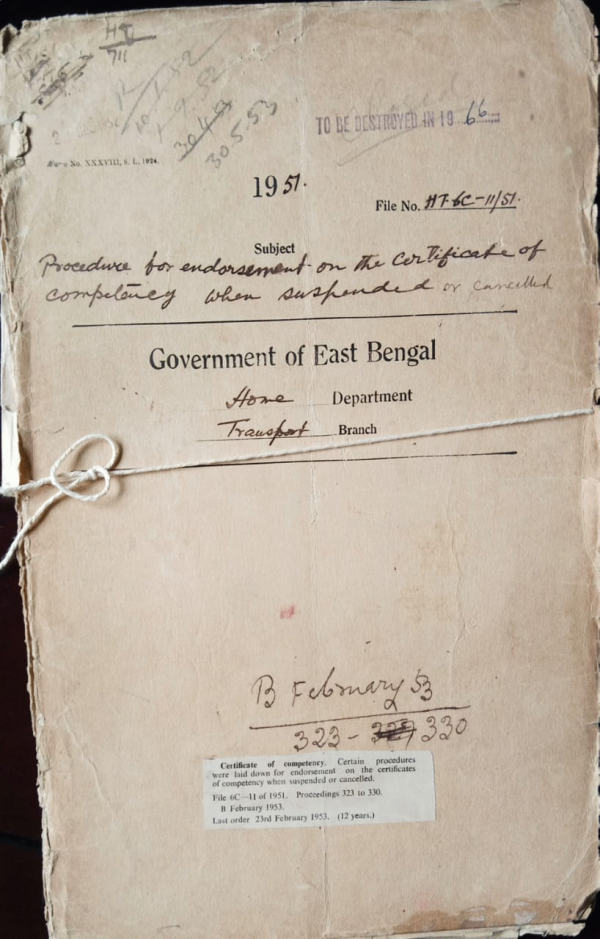 HT
711
30.4.53
30 5.53
TO BE DESTROYED IN 19 66
Form No. XXXVIII, S. L., 1924.
1951.
File No. HT-6C-11/51.
Subject
Procedure for endorsement on the certificate of
competency when suspended or cancelled
Government of East Bengal
Home Department
Transport Branch
B February 53
323 - 330
Certificate of competency. Certain procedures
were laid down for endorsement on the certificates
of competency when suspended or cancelled.
File 6C—11 of 1951. Proceedings 323 to 330.
B February 1953.
Last order 23rd February 1953. (12 years.)